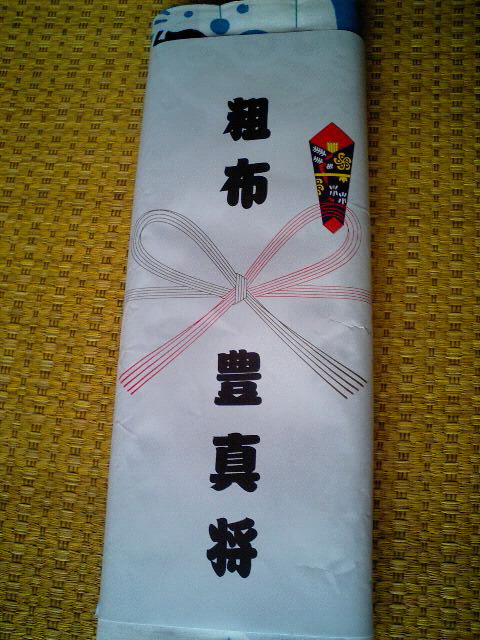 粗布
豊真将